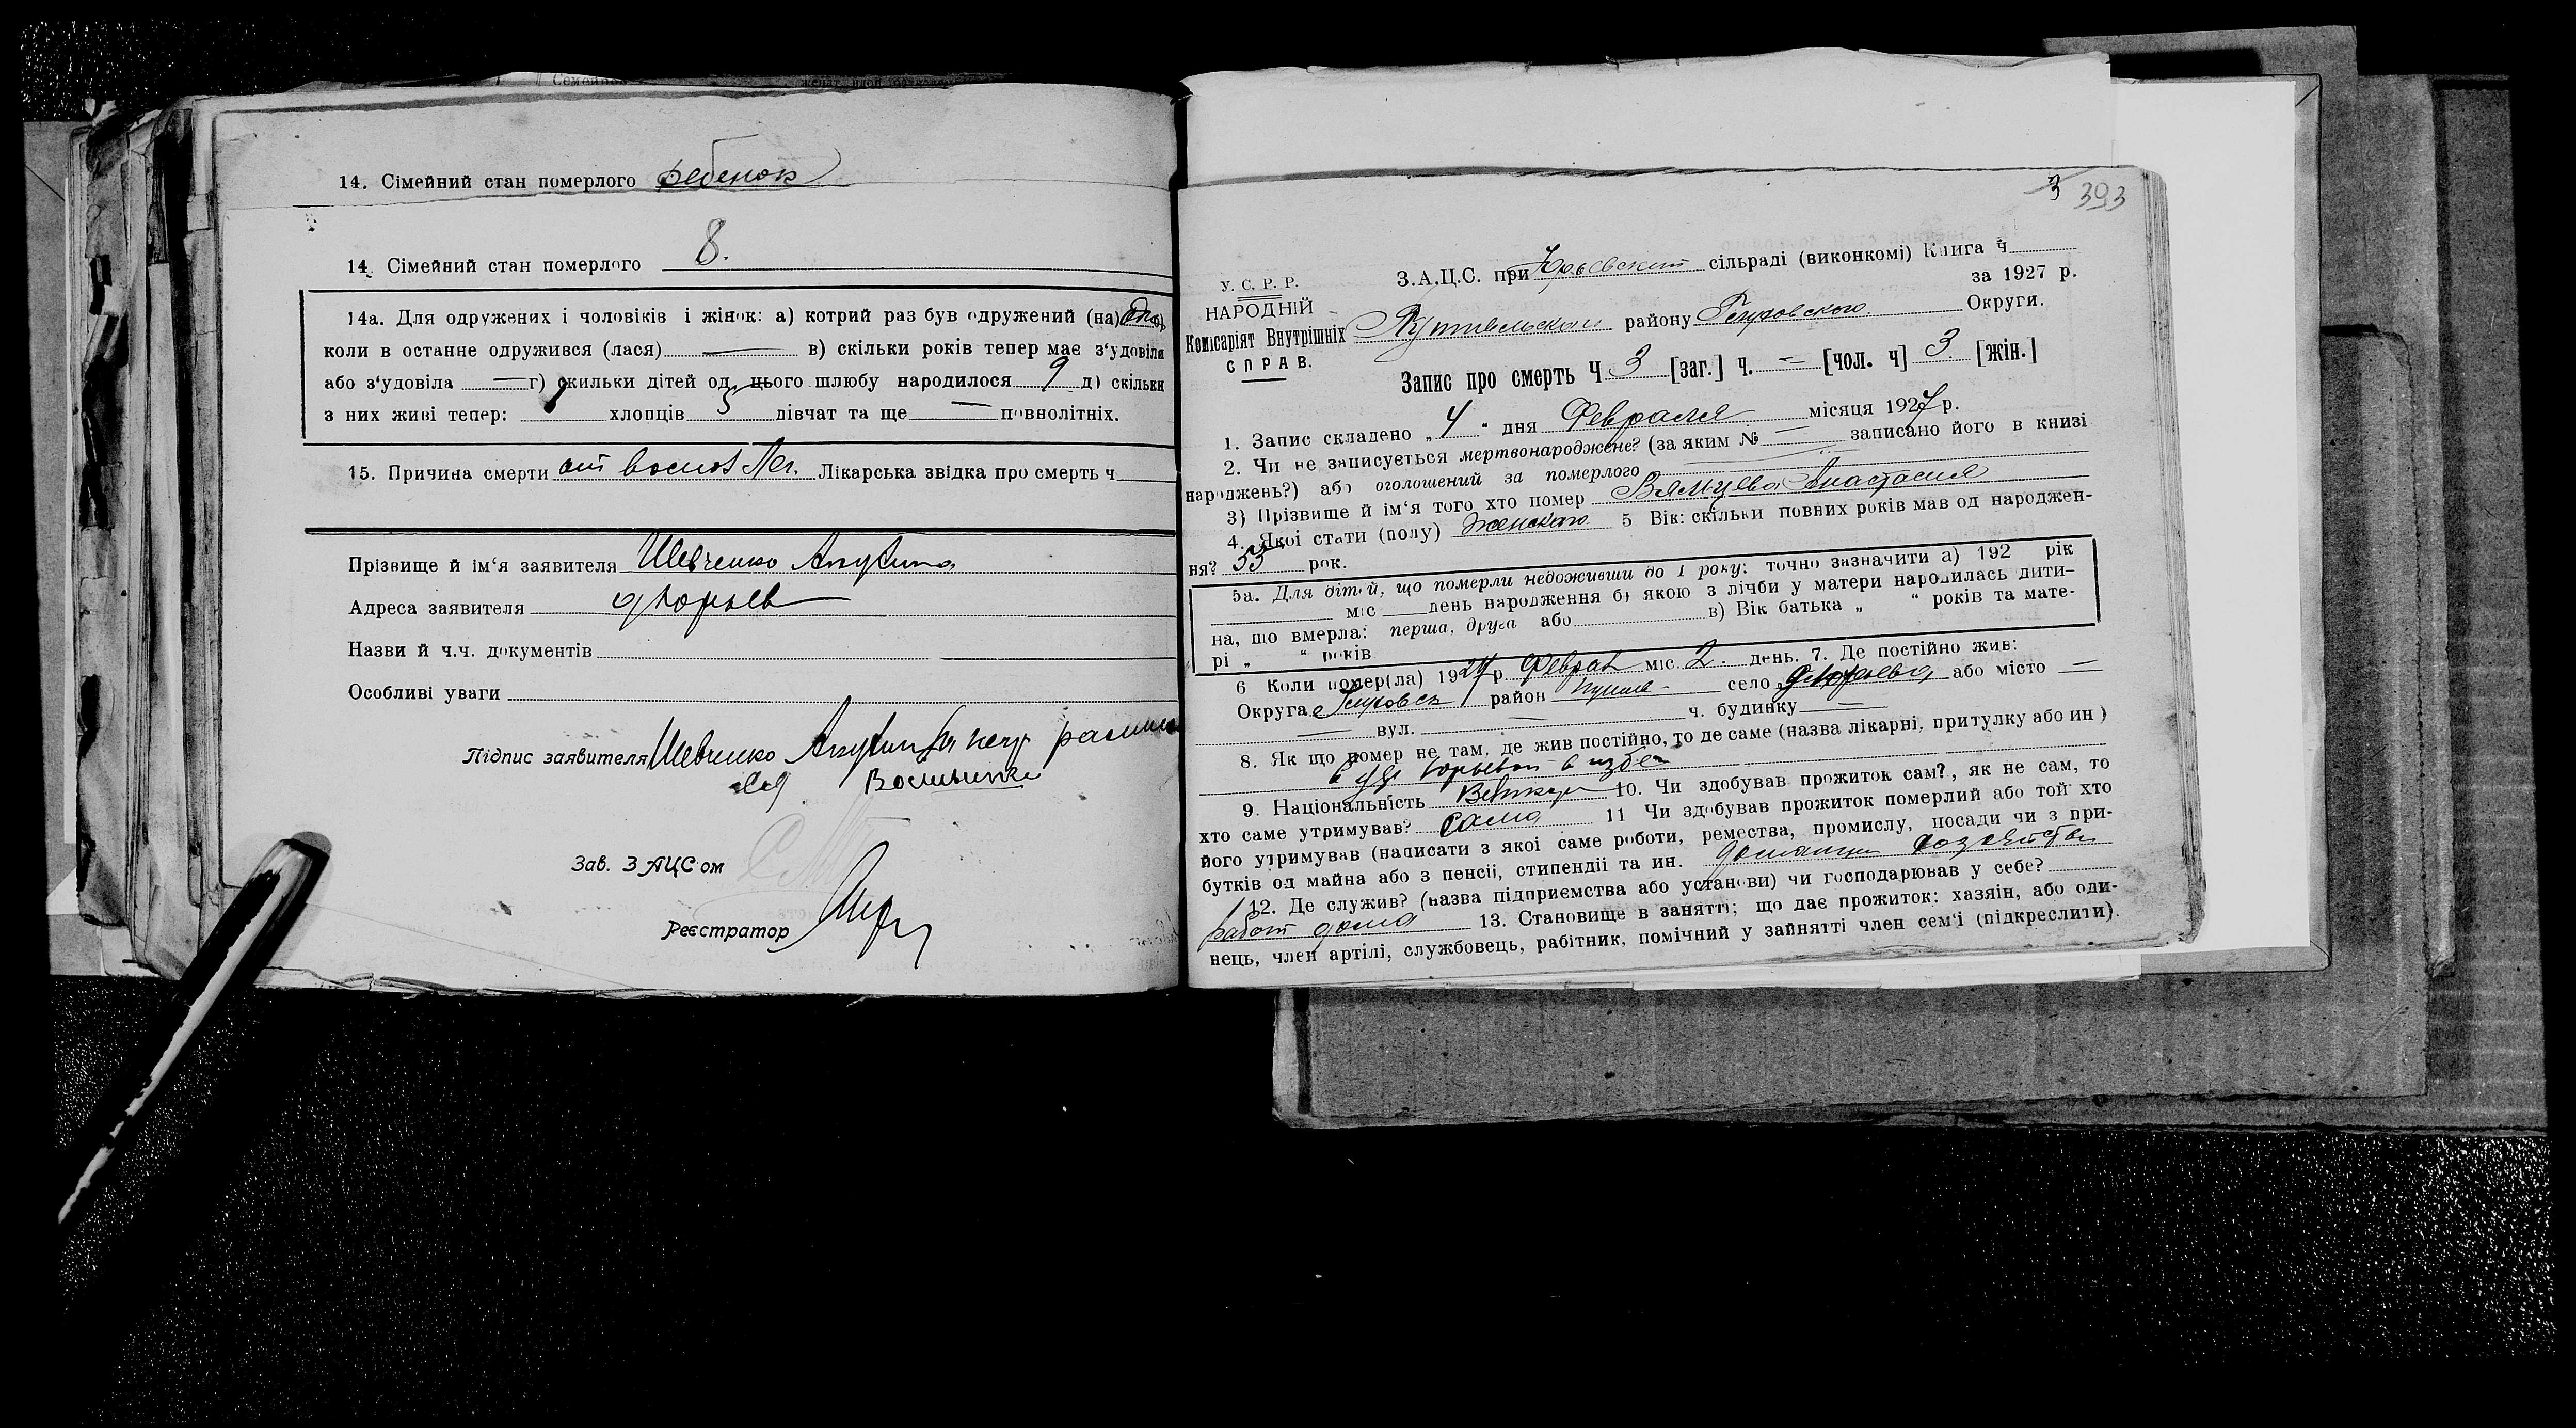 14. Сімейний стан померлого ребенок
14. Сімейний стан померлого 8.
14а. Для одружених і чоловіків і жінок: а) котрий раз був одружений (на)
коли в останне одружився (лася) — в) скільки років тепер має з'удовіли
або з'удовіла — г) скильки дітей од цього шлюбу народилося 9 д) скільки
з них живі тепер: хлопців 5 дівчат та ще — повнолітніх.
15. Причина смерти Лікарська звідка про смерть ч
Прізвище й ім'я заявителя Шевченко
Адреса заявителя д Юрьев
Назви й ч.ч. документів
Особливі уваги
Підпис заявителя Шевченко
Зав. ЗАЦСом
Реєстратор
3 393
У. С. Р. Р.
НАРОДНІЙ
Комісаріят Внутрішніх
СПРАВ.
З.А.Ц.С. при Юрьевский сільраді (виконкомі) Книга ч
за 1927 р.
Путивльском району Глуховского Округи.
Запис про смерть Ч 3 [заг.] ч. — [чол. ч] 3. [жін.]
1. Запис складено „ 4 “ дня Февраля місяця 1927 р.
2. Чи не записується мертвонароджене? (за яким № — записано його в книзі
народжень?) або оголошений за померлого
3) Прізвище й ім'я того хто помер Вяльцева Анастасия
4. Якоі стати (полу) женскаго 5 Вік: скільки повних років мав од народжен-
ня? 53 рок.
5а. Для дітей, що померли недоживши до 1 року: точно зазначити а) 192 рік
міс день народження б) якою з лічби у матери народилась дити-
на, що вмерла: перша, друга або в) Вік батька „ “ років та мате-
рі „ “ років
6 Коли помер(ла) 1927 р Феврал міс. 2. день. 7. Де постійно жив:
Округа Глуховск район Путив - село д Юрьева або місто —
— вул. — ч. будинку —
8. Як що помер не там, де жив постійно, то де саме (назва лікарні, притулку або ин)
в избе
9. Національність 10. Чи здобував прожиток сам?, як не сам, то
хто саме утримував? сама 11 Чи здобував прожиток померлий або той хто
його утримував (написати з якоі саме роботи, ремества, промислу, посади чи з при-
бутків од майна або з пенсіі, стипендіі та ин. домашн хозяйство
12. Де служив? (назва підприємства або установи) чи господарював у себе?
работ дома 13. Становище в занятті; що дає прожиток: хазяін, або оди-
нець, член артілі, службовець, рабітник, помічний у зайнятті член сем'і (підкреслити).